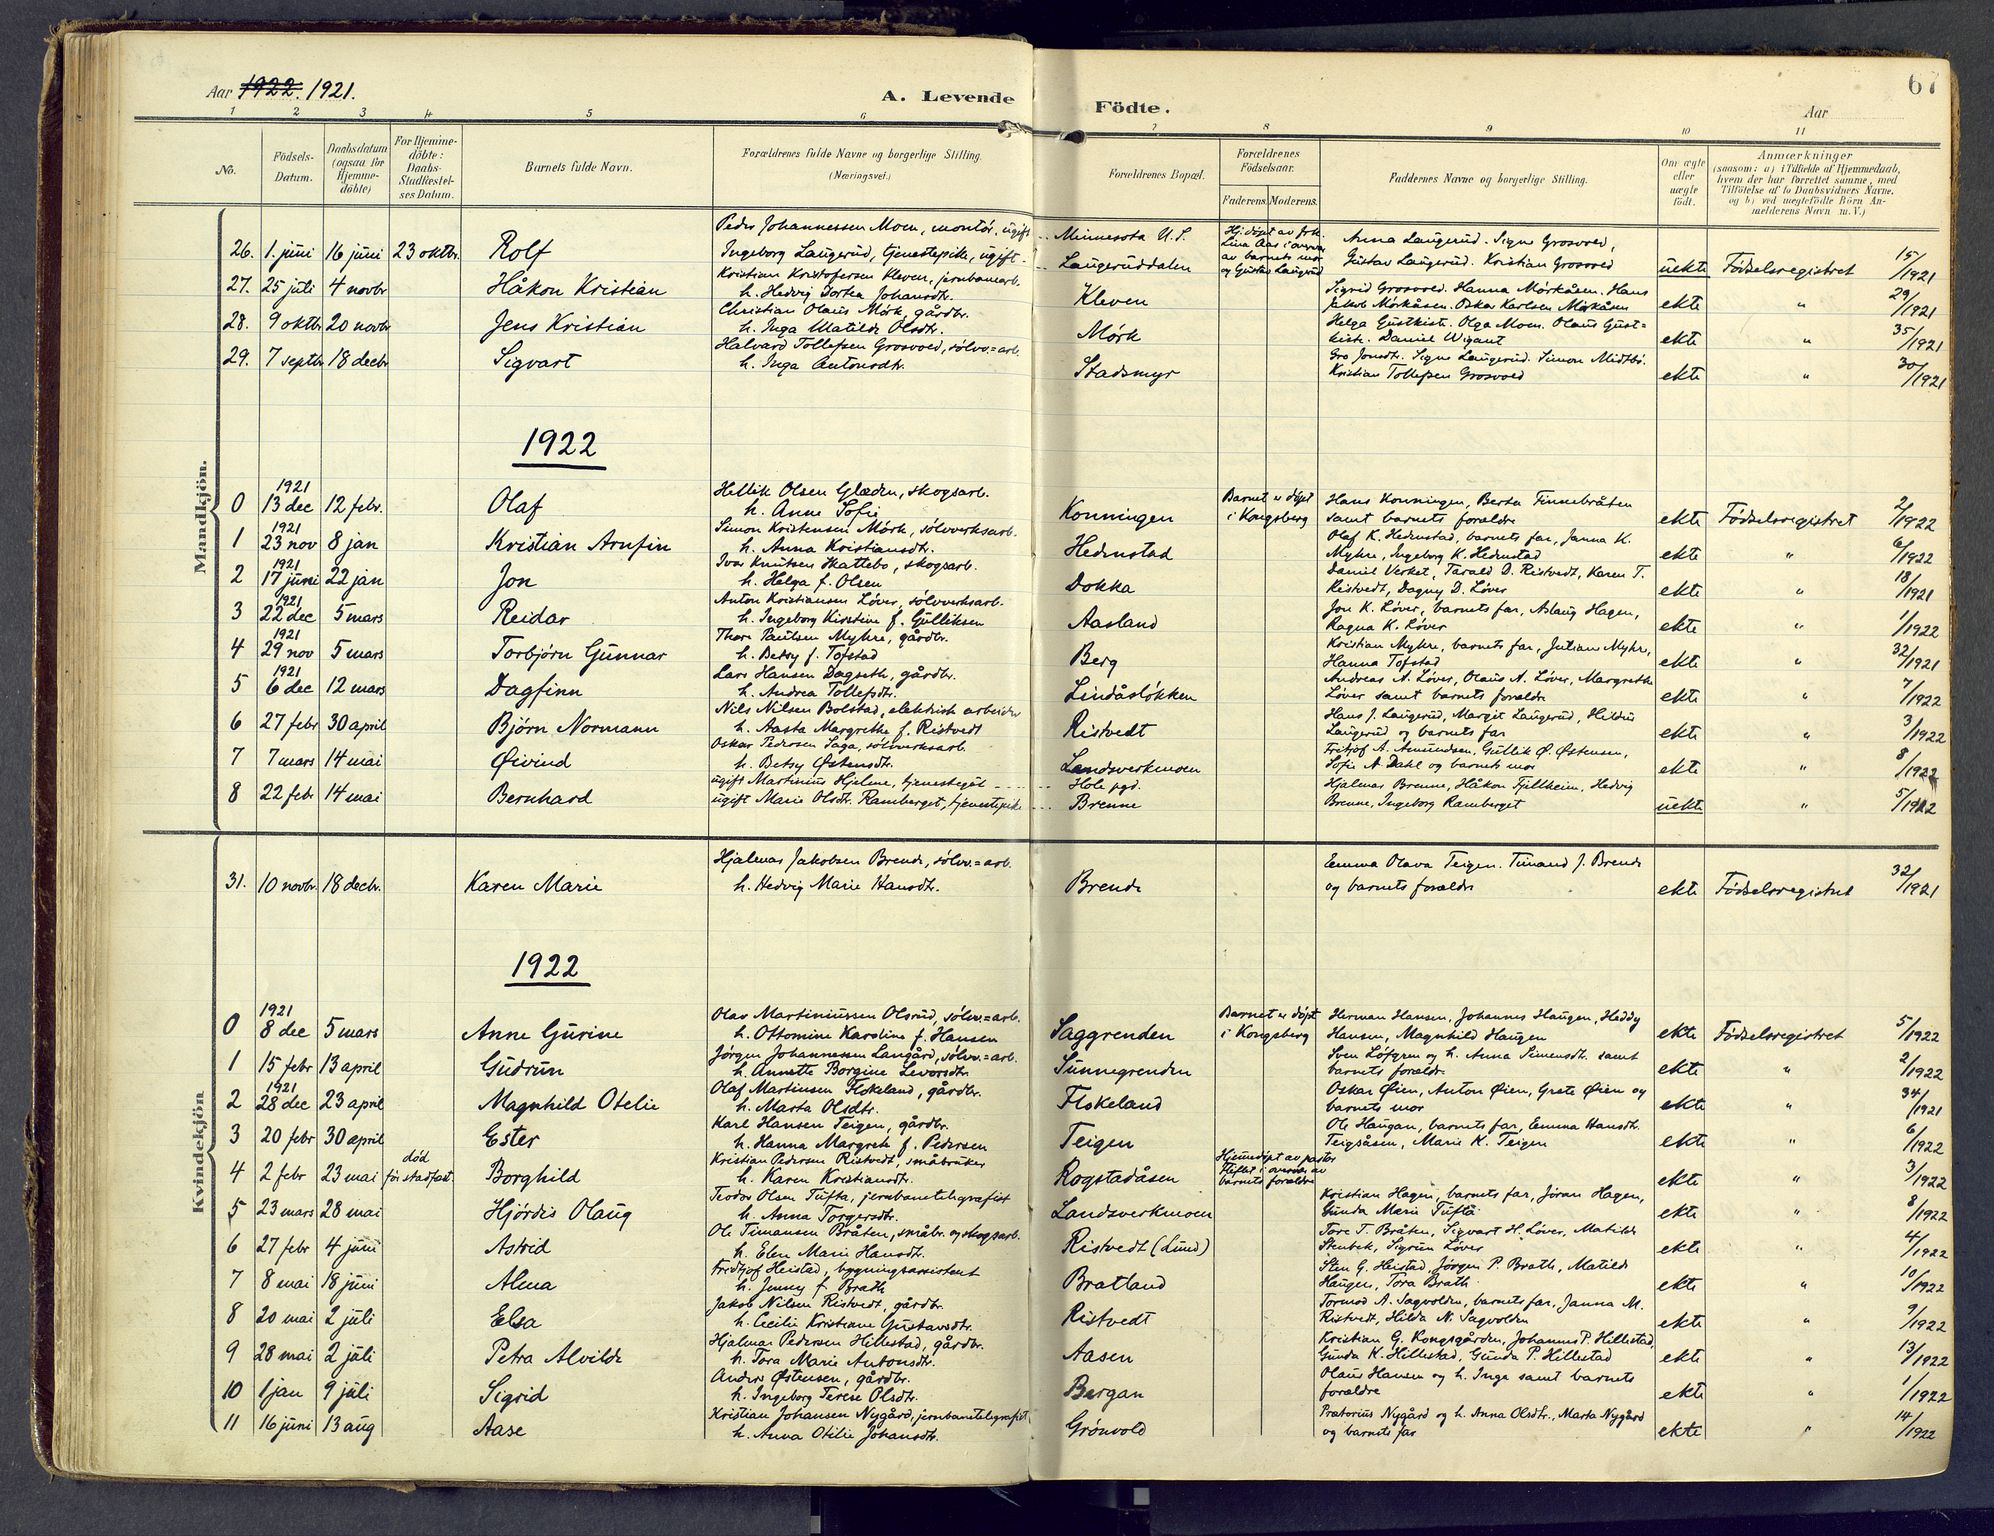 67
Aar 1922. 1921.
A. Levende Födte.
Aar
1 2 3 4 5 6 7 8 9 10 11
No.
Födsels-Datum.
Daabsdatum (ogsaa for Hjemme-döbte)
For Hjemme-döbte: Daabs-Stadfæstel-ses Datum.
Barnets fulde Navn.
Forældrenes fulde Navne og borgerlige Stilling. (Næringsvei.)
Forældrenes Bopæl.
Forældrenes Födselsaar.
Faderens. Moderens.
Faddernes Navne og borgerlige Stilling.
Om ægte eller uægte födt.
Anmærkninger
(saasom: a) i Tilfælde af Hjemmedaab, hvem der har forrettet samme, med Tilföielse af to Daabsvidners Navne, og b) ved uægtefödte Börn An-melderens Navn m. V.)
Mandkjön.
Peder Johannessen Moen, montør, ugift .. Minnesota U.S.
26. 1. juni 16 juni 23 oktbr. Rolf Ingeborg Laugerud, tjenestepike, ugift. Laugeruddalen Hj.døpt av frk. Lina Aas i overvær av barnets mor og Gustav Laugerud Anna Laugerud. Signe Grosvold, Gustav Laugerud. Kristian Grosvold uekte Fødselsregistret 15/1921
27. 25 juli 4 novbr Håkon Kristian Kristian Kristofersen Kleven, jernbanearb. h. Hedvig Dortea Johansdtr. Kleven Sigrid Grosvold. Hanna Mörkåsen. Hans Jakob Mörkåsen. Oskar Karlsen Mörkåsen ekte " 29/1921
28. 9 oktbr 20 novbr Jens Kristian Christian Olaus Mørk, gårdbr. h. Inga Matilde Olsdtr. Mørk Helga Gustkist. Olga Moen. Olaus Gust-kist. Daniel Wigant ekte " 35/1921
29. 7 septbr 18 decbr Sigvart Halvard Tollefsen Grosvold, sølvv.=arb. h. Inga Antonsdtr. Stadsmyr Gro Jonsdtr. Signe Laugerud. Simon Midtbø. Kristian Tollefsen Grosvold ekte " 30/1921
1922
0 1921 13 dec 12 febr. Olaf Hellik Olsen Glæden, skogsarb. h. Anne Sofie Konningen Barnet er døpt i Kongsberg Hans Konningen, Berta Finnebråten samt barnets foreldre ekte Fødselsregistret 2/1922
1 1921 23 nov 8 jan Kristian Arnfin Simon Kristensen Mörk, sølvverksarb. h. Anna Kristiansdtr. Hedenstad Olaf K. Hedenstad, barnets far, Janna K. Myhre, Ingeborg K. Hedenstad ekte " 6/1922
2 1921 17 juni 22 jan Jon Ivar Knutsen Skattebo, skogsarb. h. Helga f. Olsen Dokka Daniel Verket, Tarald D. Ristvedt, Karen T. Ristvedt, Dagny D. Løver ekte " 18/1921
3 1921 22 dec 5 mars Reidar Anton Kristiansen Løver, sølvverksarb. h. Ingeborg Kirstine f. Gulliksen Aasland Jon K. Løver, barnets far, Aslaug Hagen, Ragna K. Løver ekte " 1/1922
4 1921 29 nov 5 mars Torbjørn Gunnar Thor Paulsen Myhre, gårdbr. h. Betsy f. Tofstad Berg Kristian Myhre, barnets far, Julian Myhre, Hanna Tofstad ekte " 32/1921
5 1921 6 dec 12 mars Dagfinn Lars Hansen Dagseth, gårdbr. h. Andrea Tollefsdtr. Lindåsløkken Andreas A. Løver, Olaus A. Løver, Margrethe Løver samt barnets foreldre ekte " 7/1922
6 27 febr 30 april Bjørn Normann Nils Nilsen Bolstad, elektrisk arbeider h. Aasta Margrethe f. Ristvedt Ristvedt Hans J. Laugerud, Margit Laugerud, Hildur Laugerud og barnets far ekte " 3/1922
7 7 mars 14 mai Øivind Oskar Pedersen Saga, sølvverksarb. h. Betsy Østensdtr. Landsverkmoen Fritjof A. Amundsen, Gullik Ø. Østensen, Sofie A Dahl og barnets mor ekte " 8/1922
8 22 febr 14 mai Bernhard ugift Martinius Hjelme, tjenestegut Hole pgd. ugift Marie Olsdtr. Ramberget, tjenestepike Brenne Hjalmar Brenne, Håkon Fjellheim, Hedvig Brenne, Ingeborg Ramberget uekte " 5/1922
Kvindekjön
31. 10 novbr. 18 decbr. Karen Marie Hjalmar Jakobsen Brende, sølvv.=arb. h. Hedvig Marie Hansdtr. Brende Emma Olava Teigen. Timand J. Brende og barnets foreldre ekte Fødselsregistret 32/1921
1922
0 1921 8 dec 5 mars Anne Gurine Olav Martiniussen Olsrud, sølvv.=arb. h. Ottomine Karoline f. Hansen Saggrenden Barnet er døpt i Kongsberg Herman Hansen, Johannes Haugen, Heddy Hansen, Magnhild Haugen ekte Fødselsregistret 5/1922
1 15 febr 13 april Gudrun Jørgen Johannessen Langård, sølvv.=arb. h. Annette Borgine Levorsdtr. Sunnegrenden Sven Löfgren og h. Anna Simensdtr. samt barnets foreldre ekte " 2/1922
2 1921 28 dec 23 april Magnhild Otelie Olaf Martinsen Flokeland, gårdbr. h. Marta Olsdtr. Flokeland Oskar Øien, Anton Øien, Grete Øien og barnets mor ekte " 34/1921
3 20 febr 30 april Ester Karl Hansen Teigen, gårdbr. h. Hanna Margrete f. Pedersen Teigen Ole Haugan, barnets far, Emma Hansdtr. Teigsåsen, Marie K. Teigen ekte " 6/1922
4 2 febr 23 mai død før stadfæst. Borghild Kristian Pedersen Ristvedt, småbruker h. Karen Kristiansdtr. Rogstadåsen Hjemmedøpt av pastor i overvær av barnets foreldre ekte " 3/1922
5 23 mars 28 mai Hjørdis Olaug Teodor Olsen Tufta, jernbanetelegrafist h. Anna Torgersdtr. Landsverkmoen Kristian Hagen, barnets far, Jøran Hagen, Gunda Marie Tufta ekte " 8/1922
6 27 febr 4 juni Astrid Ole Timansen Bråten, småbr. og skogsarb. h. Elen Marie Hansdtr. Ristvedt (Lund) Tore T. Bråten, Sigvart H. Løver, Matilde Stenbek, Sigrun Løver ekte " 4/1922
7 8 mai 18 juni Alma Fredtjof Heistad, bygningsassistent h. Jenny f. Brath Bratland Sten G. Heistad, Jørgen P. Brath, Matilde Haugen, Tora Brath ekte " 10/1922
8 20 mai 2 juli Elsa Jakob Nilsen Ristvedt, gårdbr. h. Cecilie Kristiane Gustavsdtr. Ristvedt Tormod A. Sagvolden, barnets far, Janna M. Ristvedt, Hilda N. Sagvolden ekte " 9/1922
9 28 mai 2 juli Petra Alvilde Hjalmar Pedersen Hillestad, gårdbr. h. Tora Marie Antonsdtr. Aasen Kristian G. Kongsgården, Johannes P. Hillestad, Gunda K. Hillestad, Gunda P. Hillestad ekte " 13/1922
10 1 jan 9 juli Sigrid Anders Østensen, gårdbr. h. Ingeborg Terese Olsdtr. Bergan Olaus Hansen og h. Inga samt barnets foreldre ekte " 1/1922
11 16 juni 13 aug Aase Kristian Johansen Nygård, jernbanetelegrafist h. Anna Otilie Johansdtr. Grönvold Prætorius Nygård og h. Anna Olsdtr., Marta Nygård og barnets far ekte " 14/1922